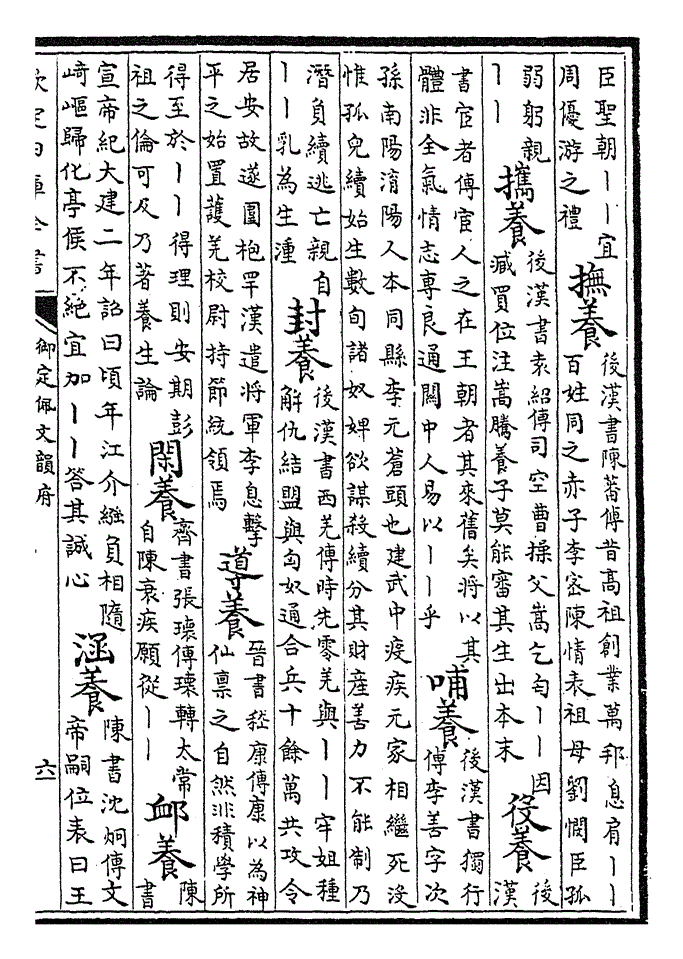 臣聖朝丨丨宜
周優游之禮
撫養
後漢書陳蕃傳昔髙祖創業萬邦息肩丨丨
百姓同之赤子李密陳情表祖母劉愍臣孤
弱躬親
丨丨
攜養
後漢書袁紹傳司空曹操父嵩乞匄丨丨因
減買位注嵩騰養子莫能審其生出本末
役養
後
漢
書宦者傳宦人之在王朝者其來舊矣將以其
體非全氣情志專良通關中人易以丨丨乎
哺養
後漢書獨行
傳李善字次
孫南陽淯陽人本同縣李元蒼頭也建武中疫疾元家相繼死沒
惟孤兒續始生數旬諸奴婢欲謀殺續分其財產善力不能制乃
潛負續逃亡親自
丨丨乳為生湩
封養
後漢書西羌傳時先零羌與丨丨牢姐種
解仇結盟與匈奴通合兵十餘萬共攻令
居安故遂圍枹罕漢遣將軍李息擊
平之始置護羌校尉持節統領焉
導養
晉書嵇康傳康以為神
仙禀之自然非積學所
得至於丨丨得理則安期彭
祖之倫可及乃著養生論
閑養
齊書張瓌傳瓌轉太常
自陳衰疾願從丨丨
卹養
陳
書
宣帝紀大建二年詔曰頃年江介繦負相隨
崎嶇歸化亭候不絕宜加丨丨答其誠心
涵養
陳書沈炯傳文
帝嗣位表曰王
欽定四庫全書
御定佩文韻府
六